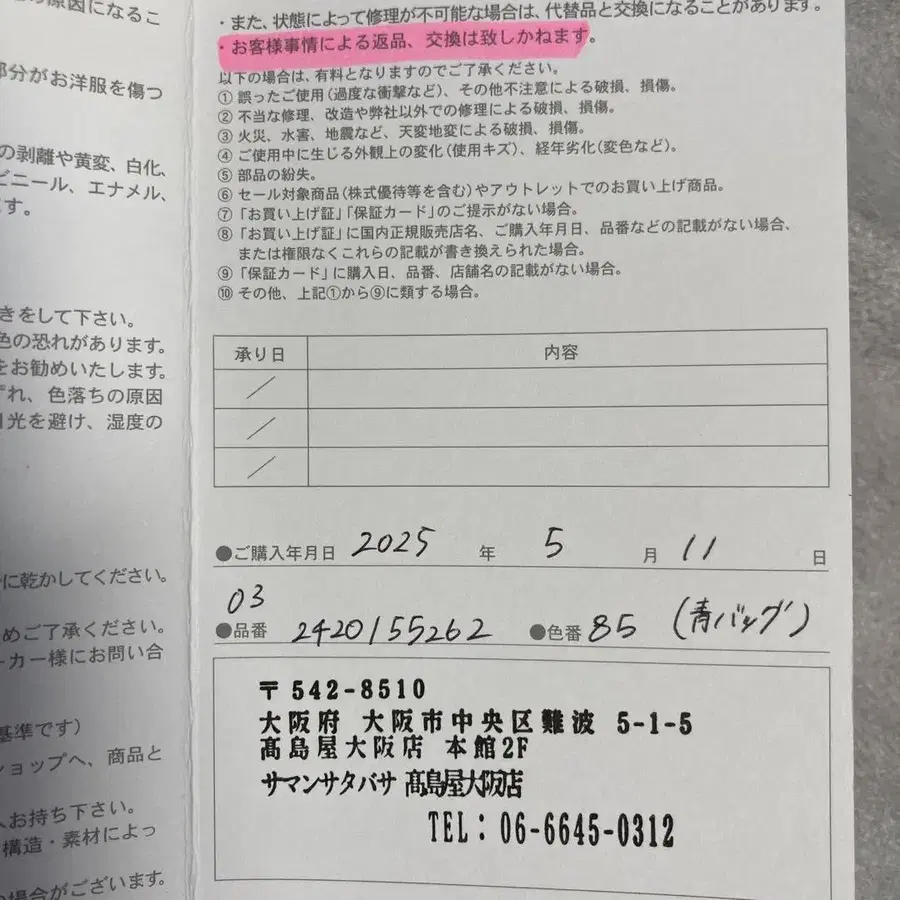 の原因になるこ
部分がお洋服を傷つ
の剥離や黄変、白化、
ビニール、エナメル、
ます。
きをして下さい。
色の恐れがあります。
をお勧めいたします。
ずれ、色落ちの原因
日光を避け、湿度の
に乾かしてください。
めご了承ください。
ーカー様にお問い合
基準です)
ショップへ、商品と
へお持ち下さい。
構造・素材によっ
の場合がございます。
・また、状態によって修理が不可能な場合は、代替品と交換になることがあります。
・お客様事情による返品、交換は致しかねます。
以下の場合は、有料となりますのでご了承ください。
① 誤ったご使用(過度な衝撃など)、その他不注意による破損、損傷。
② 不当な修理、改造や弊社以外での修理による破損、損傷。
③ 火災、水害、地震など、天変地変による破損、損傷。
④ ご使用中に生じる外観上の変化(使用キズ)、経年劣化(変色など)。
⑤ 部品の紛失。
⑥ セール対象商品(株式優待等を含む)やアウトレットでのお買い上げ商品。
⑦「お買い上げ証」「保証カード」のご提示がない場合。
⑧「お買い上げ証」に国内正規販売店名、ご購入年月日、品番などの記載がない場合、
または権限なくこれらの記載が書き換えられた場合。
⑨「保証カード」に購入日、品番、店舗名の記載がない場合。
⑩ その他、上記①から⑨に類する場合。
承り日 内容
／
／
／
●ご購入年月日 2025 年 5 月 11 日
03
●品番 2420155262 ●色番 85 (青バッグ)
〒542-8510
大阪府 大阪市中央区難波 5-1-5
髙島屋大阪店 本館2F
サマンサタバサ 髙島屋大阪店
TEL：06-6645-0312